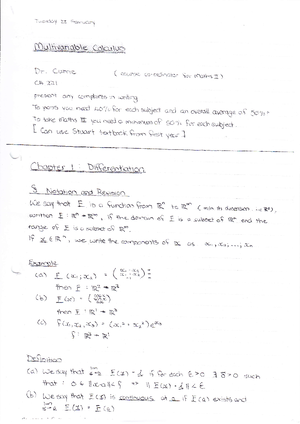 Tuesday 28 February
Multivariable Calculus
Dr. Currie (course co-ordinator for Maths 2)
present any complaints in writing
To pass you need 40% for each subject and an overall average of 50%
To take Maths III you need a minimum of 50% for each subject
[Can use Stuart textbook from first year]
Chapter 1 : Differentiation
§ Notation and Revision
We say that F is a function from ℝⁿ to ℝᵐ
written F: ℝⁿ → ℝᵐ, if the domain of F is a subset of ℝⁿ and the
range of F is a subset of ℝᵐ.
If x ∈ ℝⁿ, we write the components of x as x₁, x₂, ..., xₙ
Example
(a) F(x₁,x₂) =
then F : ℝ² → ℝ²
(b) F(x) =
then F : ℝ¹ → ℝ²
(c) f(x₁,x₂,x₃) = (x₁² + x₂²)eˣ³
f : ℝ³ →
Definition
(a) We say that lim F(x) = L if for each ε>0 ∃ δ>0 such
that : 0 < ||x-a|| < δ ⇒ ||F(x) - L|| < ε
(b) We say that F(x) is continuous at a if F(a) exists and
lim F(x) = F(a)